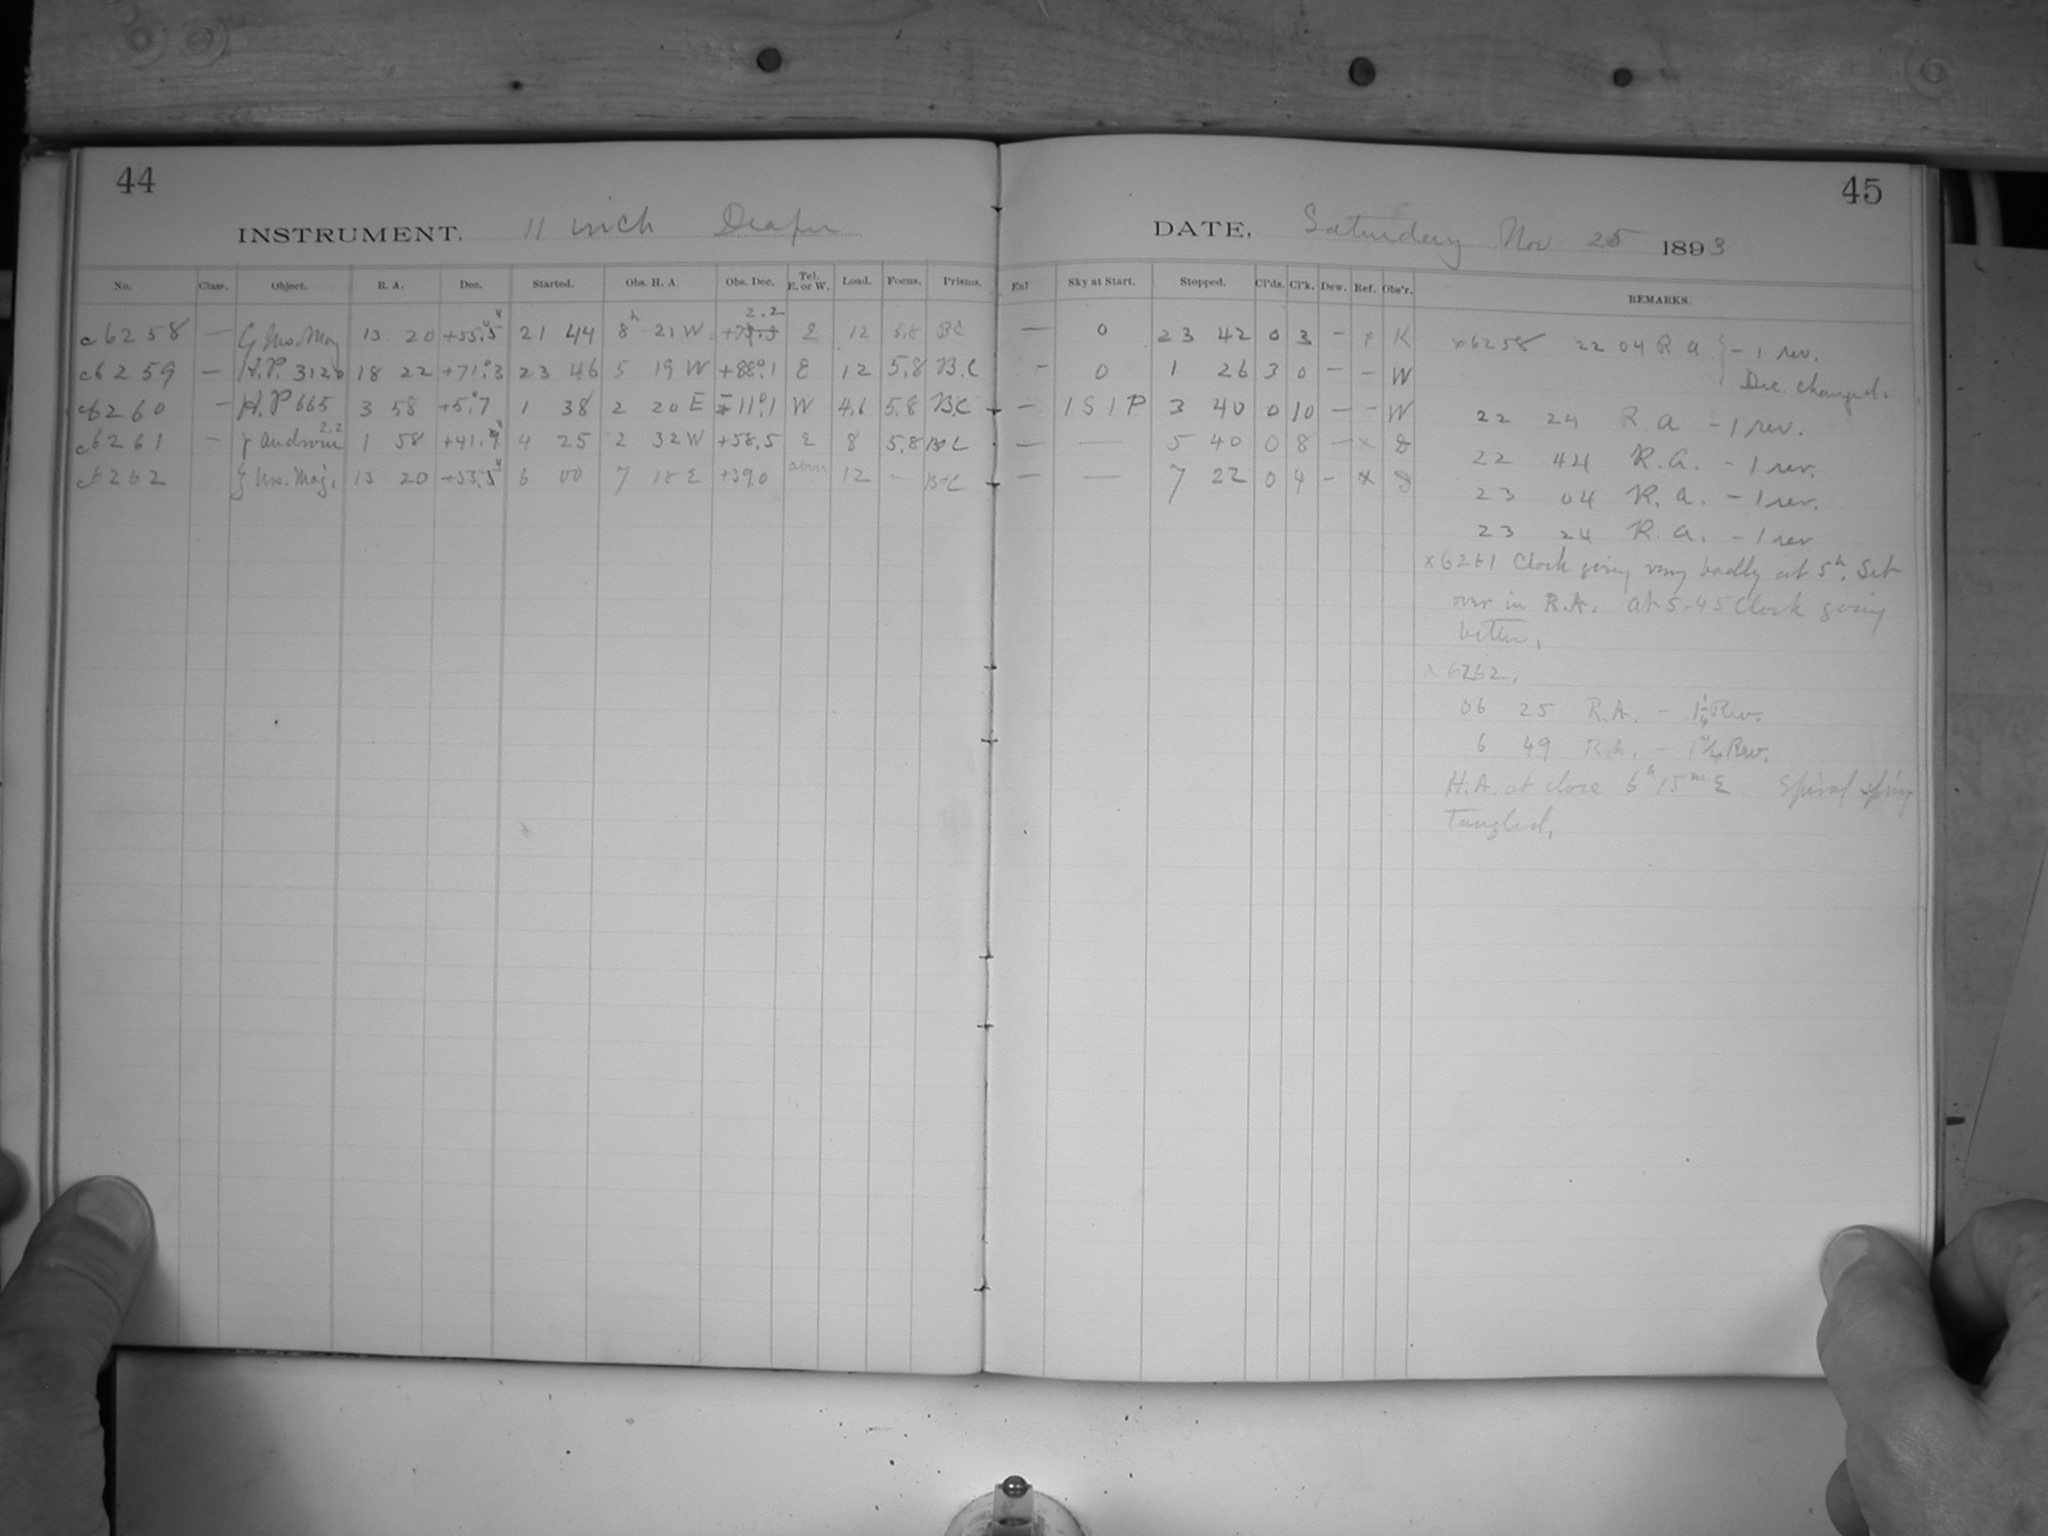 44
INSTRUMENT, 11 inch Draper
No. Class. Object. R. A. Dec. Started. Obs. H. A. Obs. Dec. Tel. E. or W. Load. Focus. Prisms.
c6258 — ζ Urs. Maj 13 20 +55.°5 21 44 8h 21 W 2.2 E 12 5.8 BC
c6259 — H.P. 3120 18 22 +71.°3 23 46 5 19 W +88.°1 E 12 5.8 B.C
c6260 — H.P 665 3 58 +5.°7 1 38 2 20 E 11.°1 W 4.6 5.8 B.C
c6261 — γ Androm 2.2 1 58 +41. 4 25 2 32 W +58.5 E 8 5.8 BC
6262 ζ Urs. Maj. 13 20 +55.5 6 00 7 18 E +39.0 12 - B+C
45
DATE, Saturday Nov 25 1893
Ext Sky at Start. Stopped. Cl'ds. Cl'k. Dew. Ref. Obs'r. REMARKS.
— 0 23 42 0 3 - x K
- 0 1 26 3 0 - - W
— 1 S 1 P 3 40 0 10 - - W
— — 5 40 0 8 - x D
— — 7 22 0 4 - x D
x6258 22 04 R a } - 1 rev.
Dec. changed.
22 24 R.a - 1 rev.
22 44 R.a. - 1 rev.
23 04 R.a. - 1 rev.
23 24 R.a. - 1 rev
x6261 Clock going very badly at 5h. Set
over in R.A. at 5.45 Clock going
better.
x 6262.
06 25 R.A. - 1 Rev.
6 49 R.A. - 1 Rev.
H.A. at close 6h 15m E. Spiral spring
tangled.